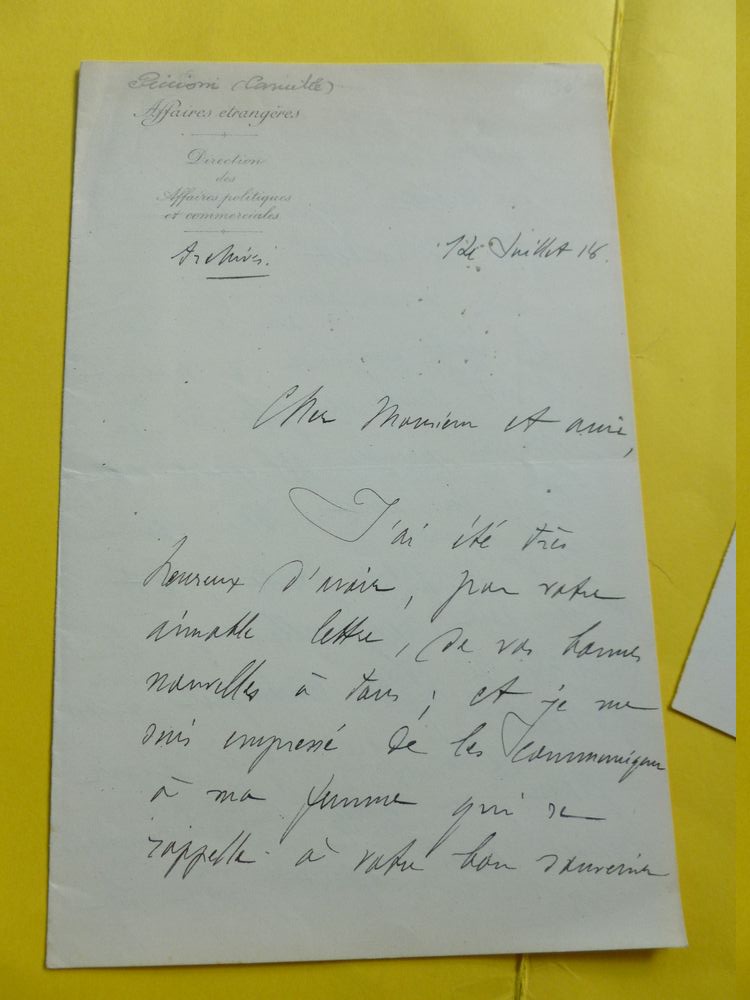 Piccioni (Camille)
Affaires étrangères
Direction
des
Affaires politiques
et commerciales
Archives.
12 Juillet 16.
Cher Monsieur et ami,
J'ai été très
heureux d'avoir, par votre
aimable lettre, de vos bonnes
nouvelles à tous ; et je me
suis empressé de les communiquer
à ma femme qui se
rappelle à votre bon souvenir